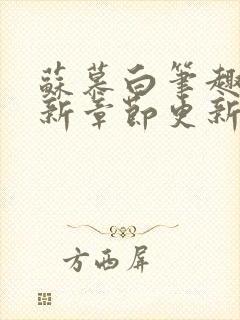 蘇慕白筆趣
新章節更新
方西屏